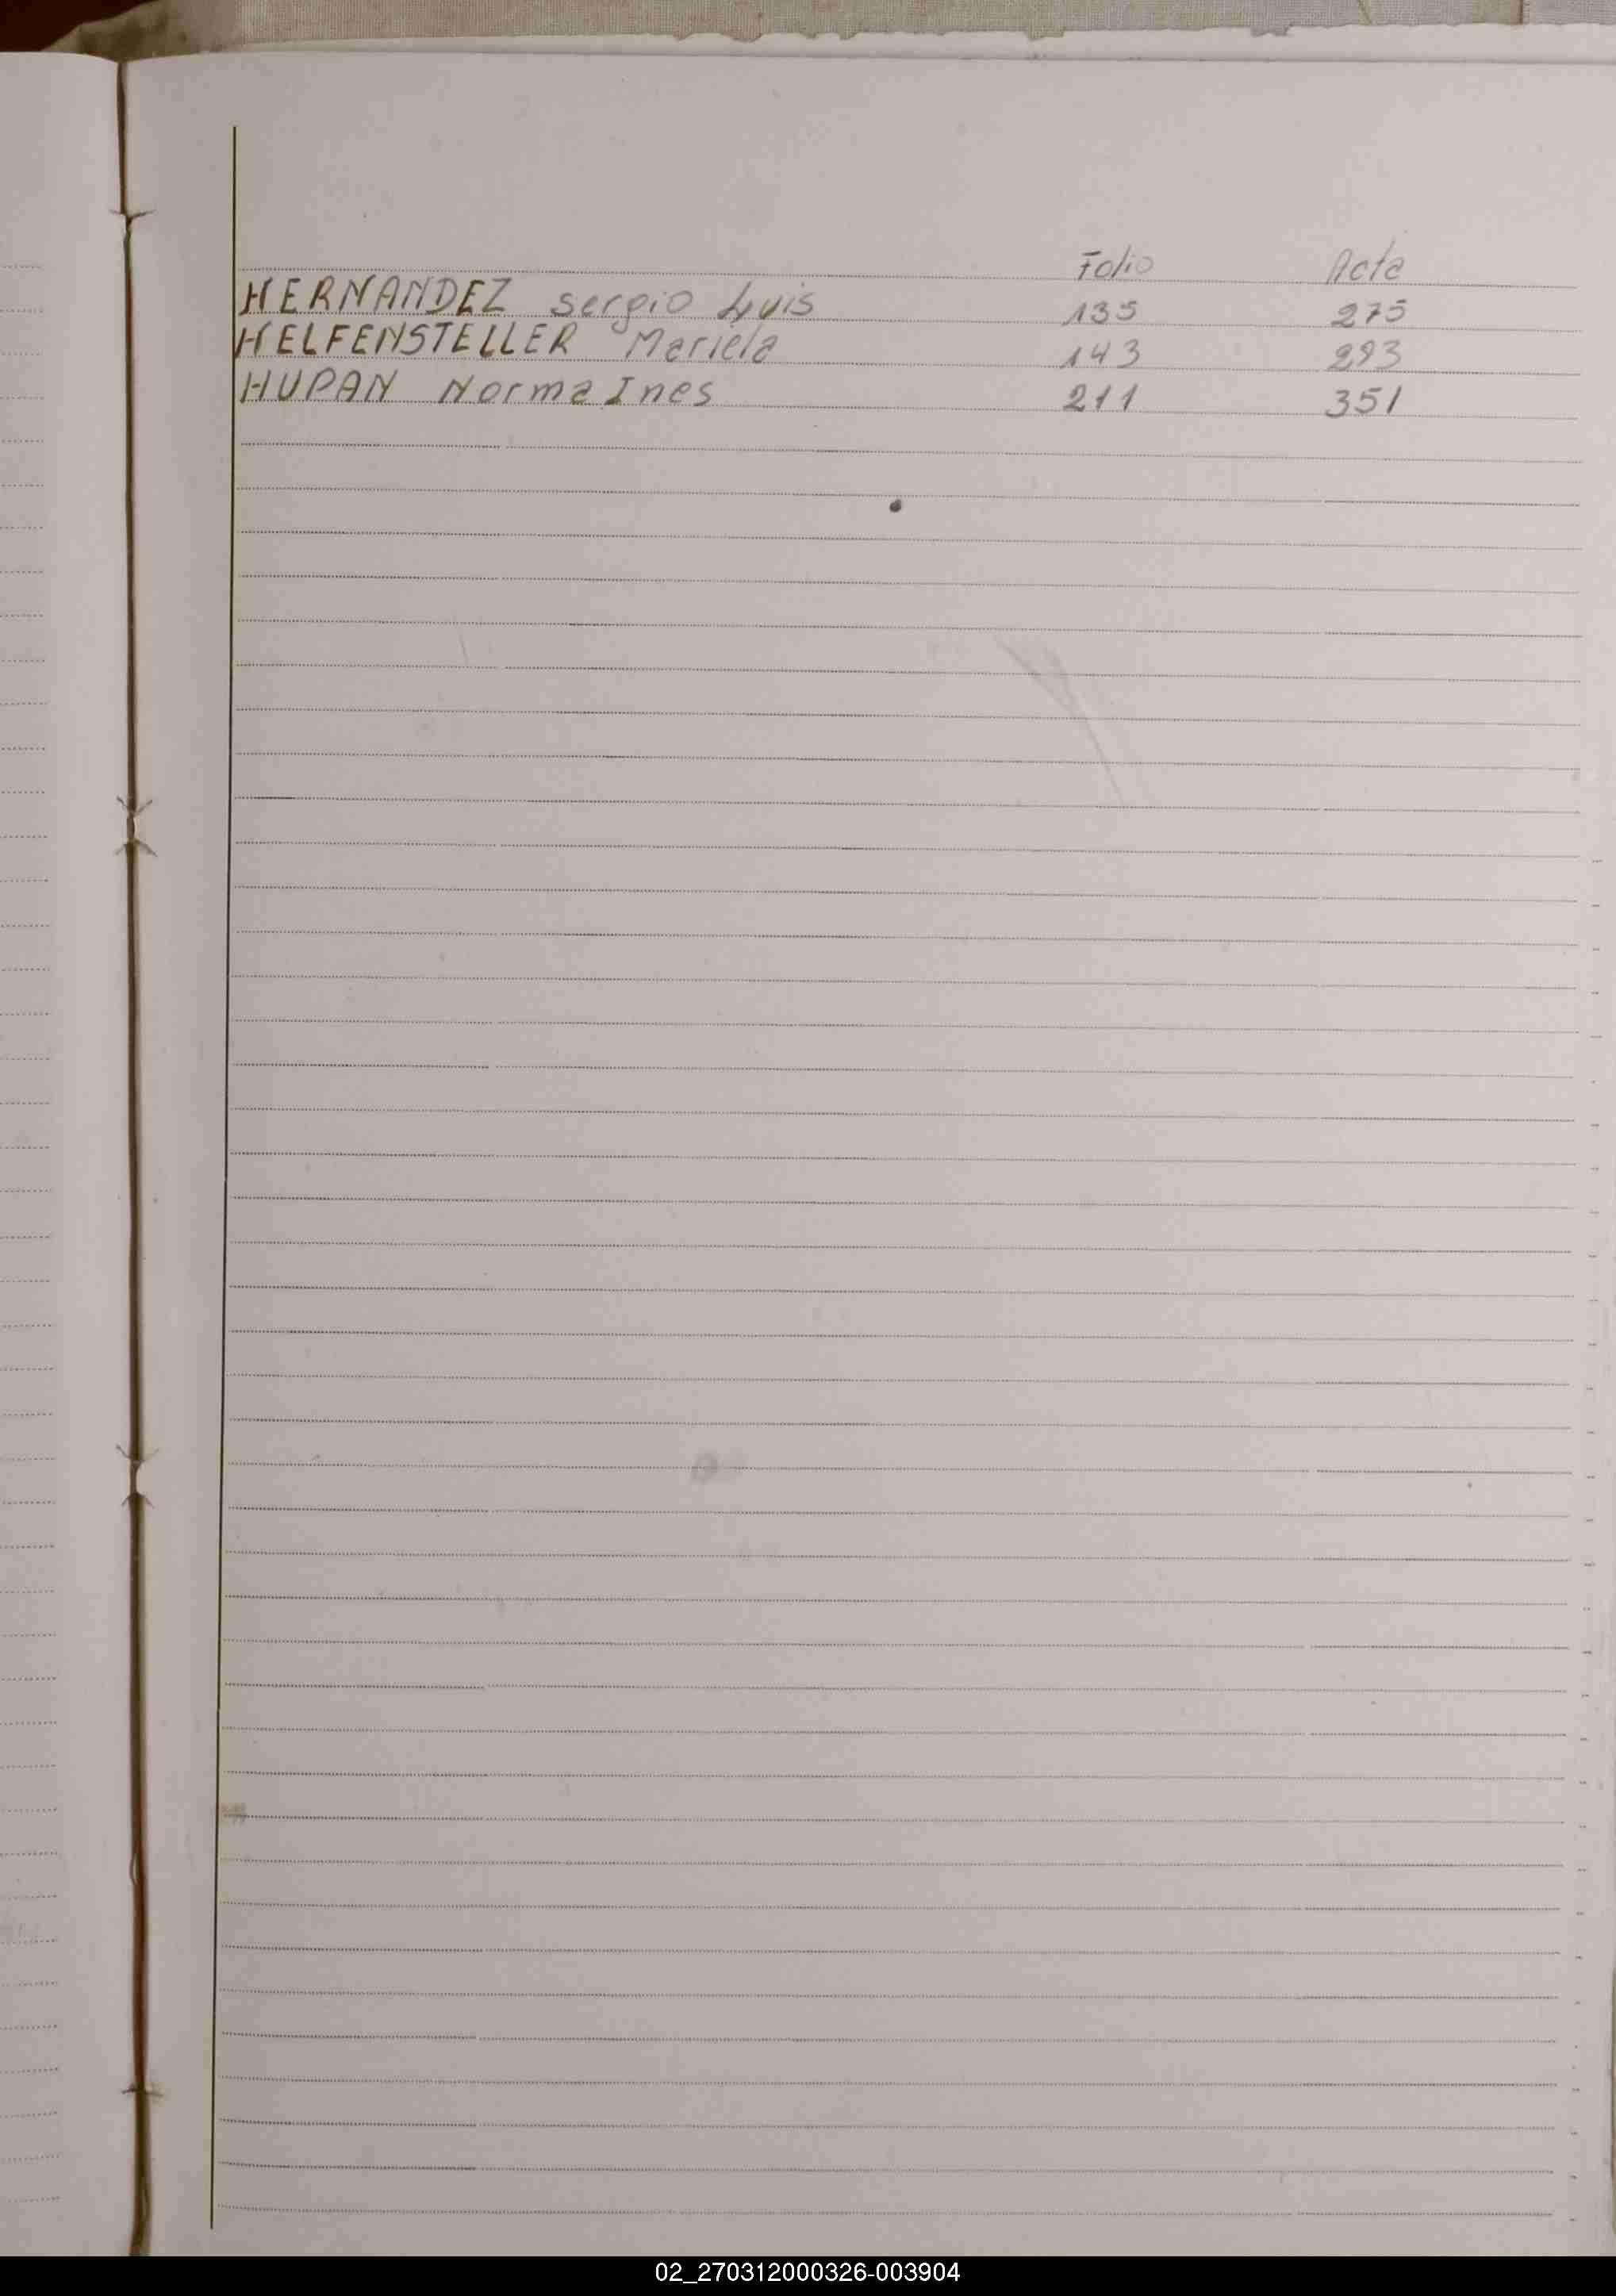 Folio Acta
HERNANDEZ Sergio Luis 135 275
HELFENSTELLER Mariela 143 283
HUPAN Norma Ines 211 351
02_270312000326-003904